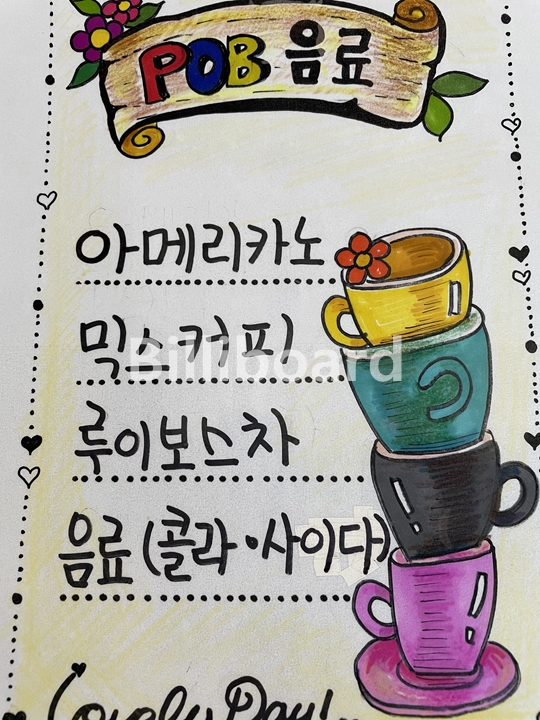 POB 음료
아메리카노
믹스커피
Billiboard
루이보스차
음료 (콜라·사이다)
Lovely Day!